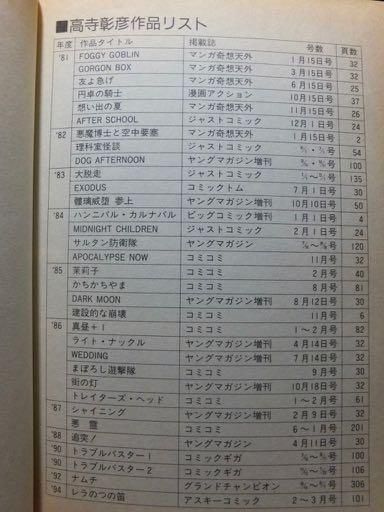 ■高寺彰彦作品リスト
年度 作品タイトル 掲載誌 号数 頁数
'81 FOGGY GOBLIN マンガ奇想天外 1月15日号 32
GORGON BOX マンガ奇想天外 3月15日号 32
友よ急げ マンガ奇想天外 6月15日号 25
円卓の騎士 漫画アクション 10月15日号 37
想い出の夏 マンガ奇想天外 10月15日号 26
AFTER SCHOOL ジャストコミック 12月1日号 24
'82 悪魔博士と空中要塞 マンガ奇想天外 1月15日号 2
理科室怪談 ジャストコミック 54
DOG AFTERNOON ヤングマガジン増刊 100
'83 大脱走 ジャストコミック 135
EXODUS コミックトム 7月1日号 30
髑髏威堕 参上 ヤングマガジン増刊 10月10日号 50
'84 ハンニバル・カルナバル ビッグコミック増刊 1月1日号 4
MIDNIGHT CHILDREN ジャストコミック 2月1日号 24
サルタン防衛隊 ヤングマガジン 120
APOCALYPSE NOW コミコミ 11月号 32
'85 茉莉子 コミコミ 2月号 40
かちかちやま コミコミ 8月号 81
DARK MOON ヤングマガジン増刊 8月12日号 30
建設的な崩壊 コミコミ 11月号 6
'86 真昼+1 コミコミ 1〜2月号 82
ライト・ナックル ヤングマガジン増刊 4月14日号 32
WEDDING ヤングマガジン増刊 7月14日号 32
まぼろし遊撃隊 コミコミ 9月号 31
街の灯 ヤングマガジン増刊 10月18日号 32
トレイターズ・ヘッド コミコミ 月号 61
'87 シャイニング ヤングマガジン増刊 2月9日号 32
悪霊 コミコミ 6〜1月号 201
'88 追突! ヤングマガジン 4月11日号 30
'90 トラブルバスター1 コミックギガ 100
'90 トラブルバスター2 コミックギガ 106
'92 ナムチ グランドチャンピオン 306
'94 レラのつの笛 アスキーコミック 2〜3月号 101